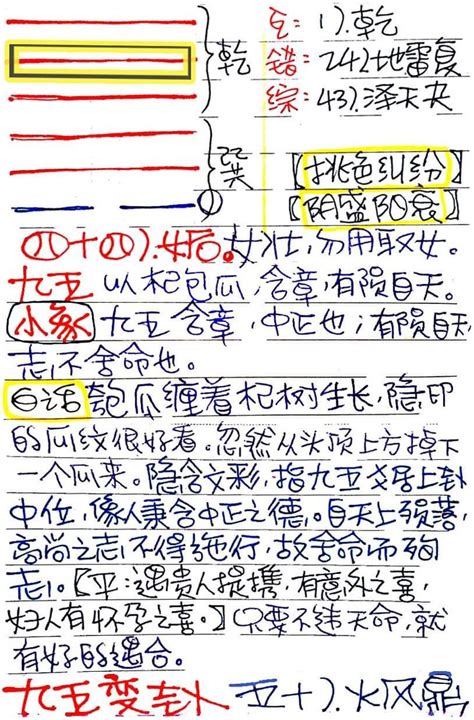 乾
互:1).乾
错:24).地雷复
综:43).泽天夬
巽
【桃色纠纷】
【阴盛阳衰】
㊃十㊃).姤。女壮,勿用取女。
九五 以杞包瓜,含章,有陨自天。
小象 九五含章,中正也;有陨自天,
志不舍命也。
白话 匏瓜缠着杞树生长,隐印
的瓜纹很好看。忽然从头顶上方掉下
一个瓜来。隐含文彩,指九五爻居上卦
中位,像人秉含中正之德。自天上殒落,
高尚之志不得施行,故舍命而殉
志。【平:遇贵人提携,有意外之喜,
妇人有怀孕之喜。】只要不违天命,就
有好的遇合。
九五变卦 五十).火风鼎